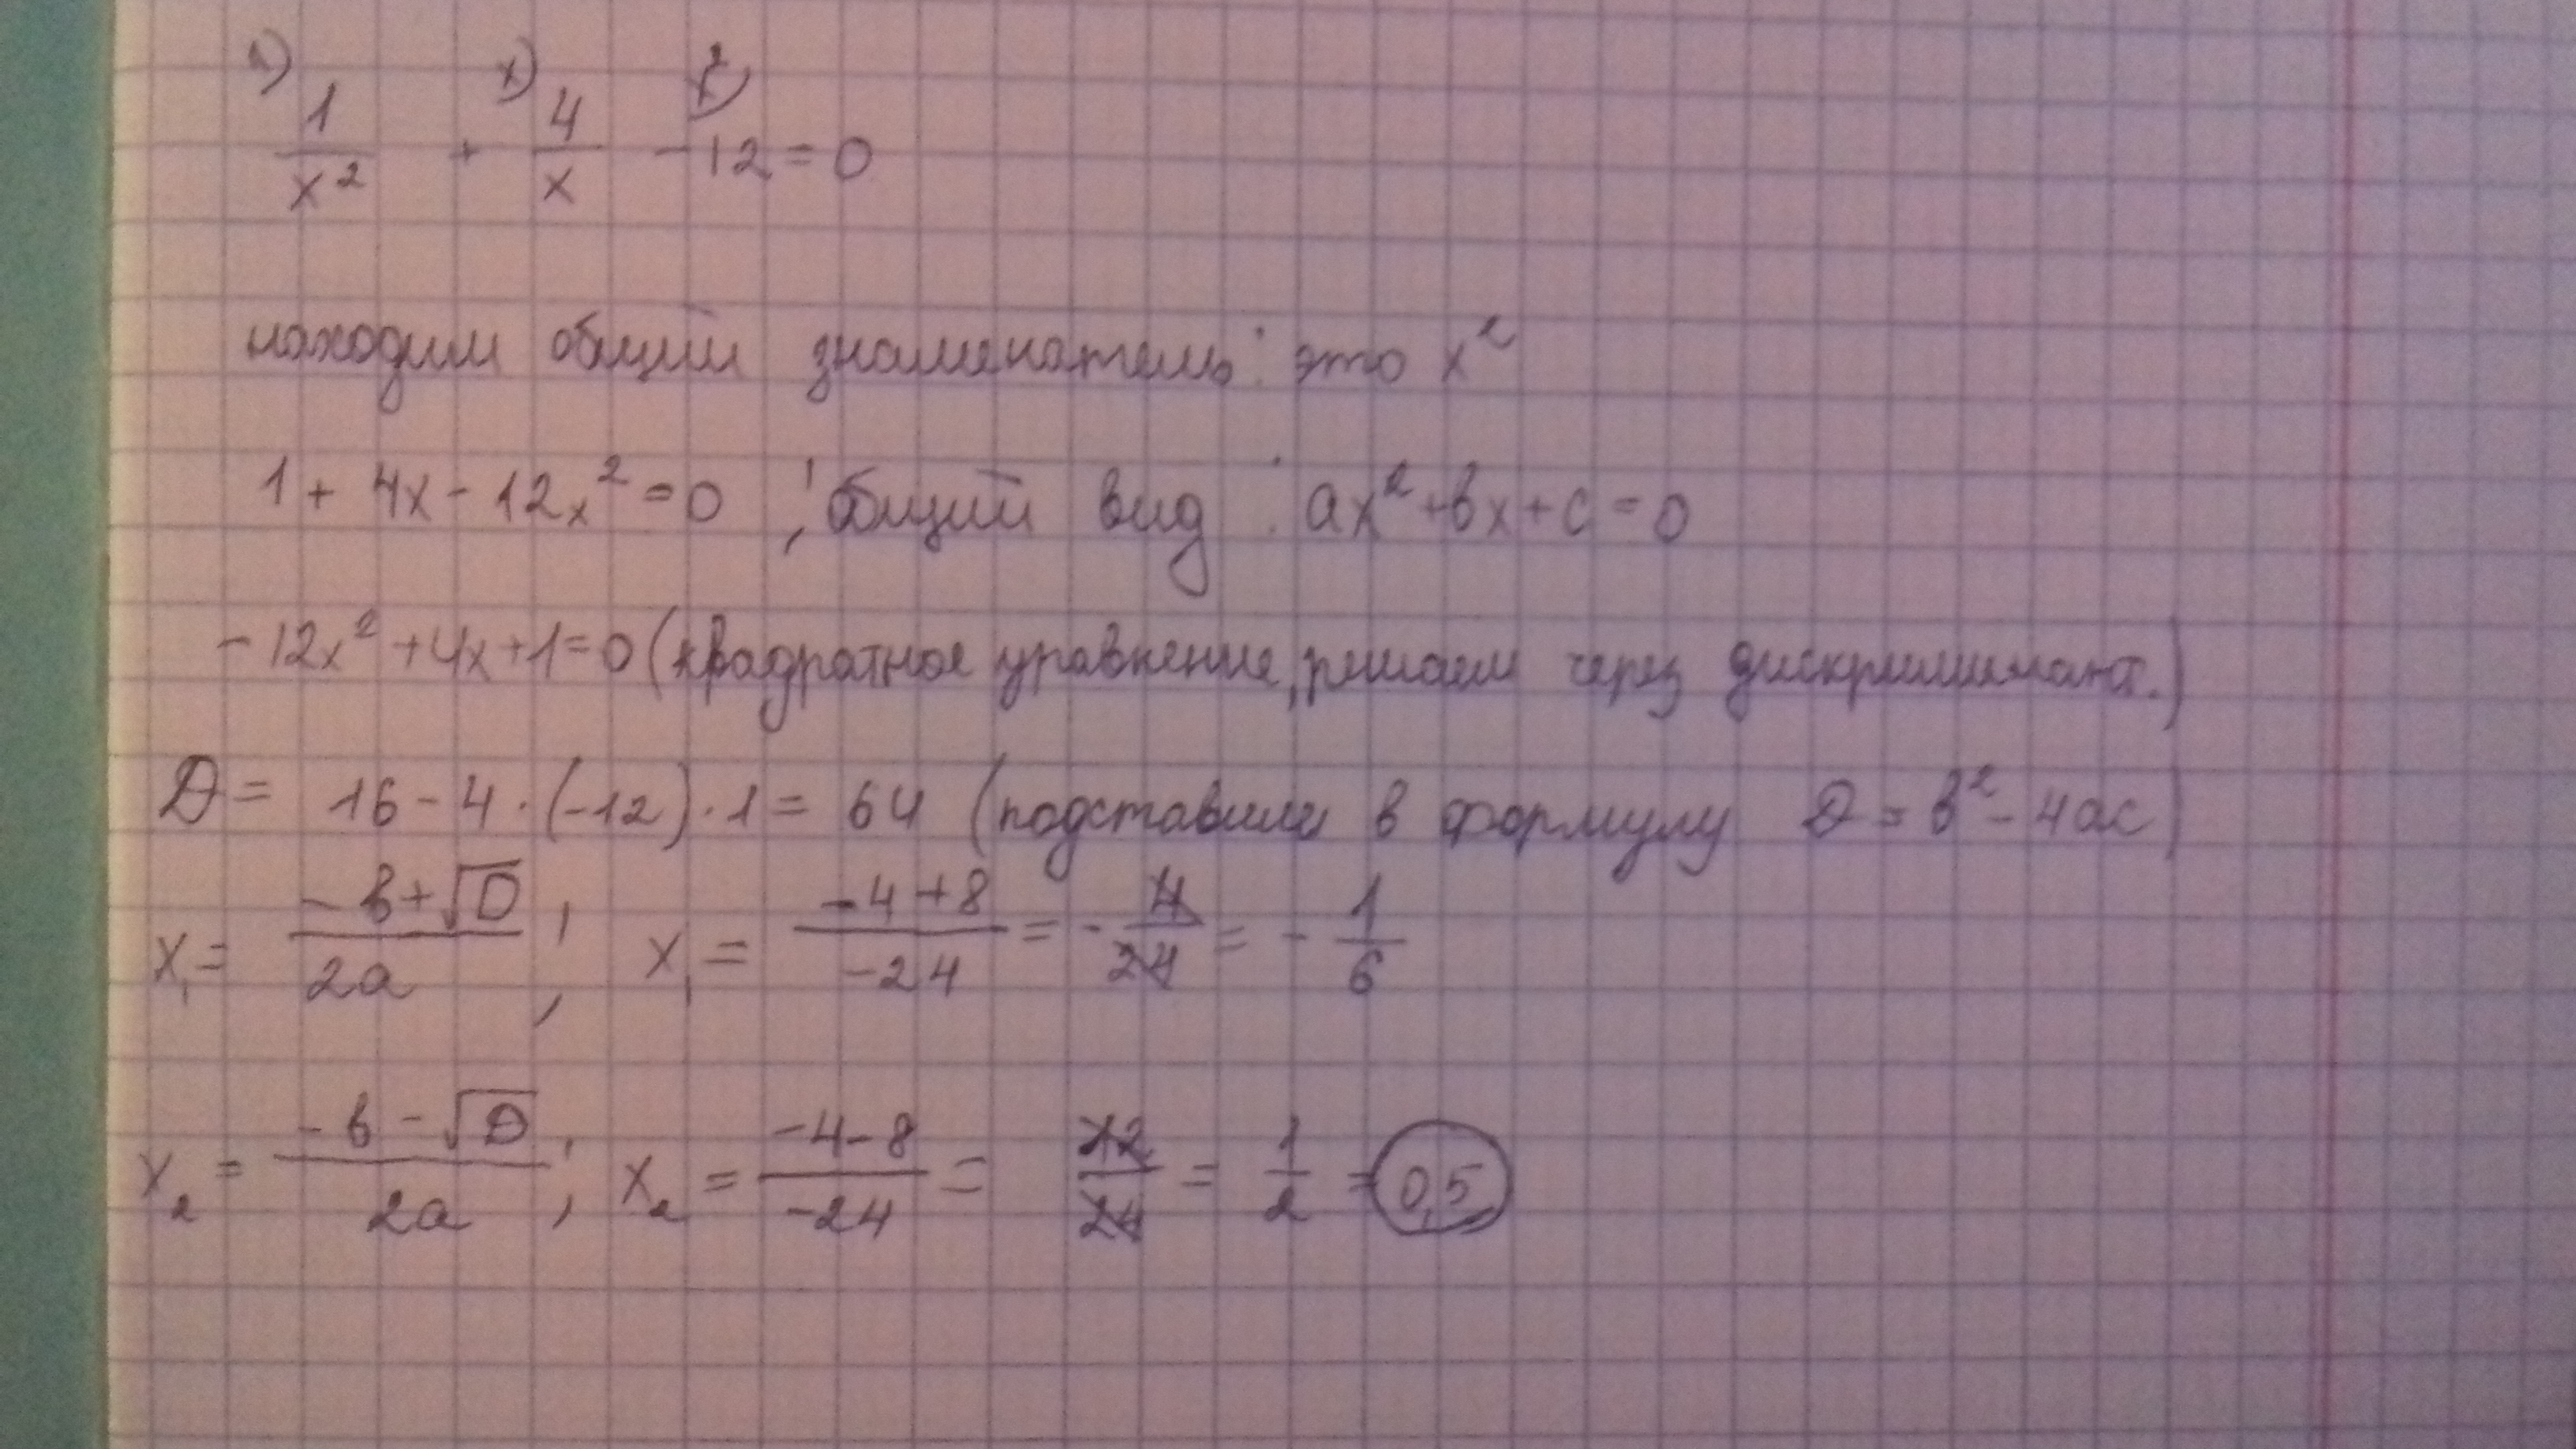 1) x) x²)
1/x² + 4/x - 12 = 0
находим общий знаменатель: это x²
1 + 4x - 12x² = 0 ; общий вид : ax² + bx + c = 0
-12x² + 4x + 1 = 0 (квадратное уравнение, решаем через дискриминант.)
D = 16 - 4 · (-12) · 1 = 64 (подставили в формулу D = b² - 4ac)
x₁ = (-b + √D)/2a ; x₁ = (-4 + 8)/-24 = - 4/24 = - 1/6
x₂ = (-b - √D)/2a ; x₂ = (-4 - 8)/-24 = 12/24 = 1/2 = 0,5